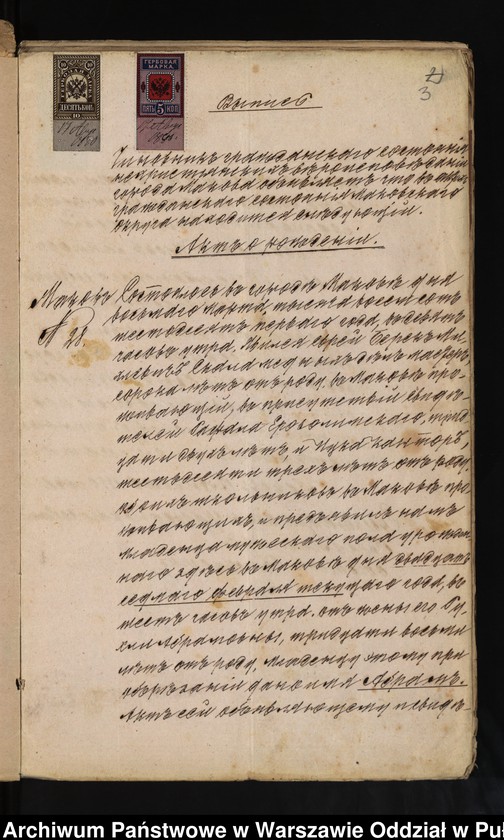 2
3
ДЕСЯТЬ КОП.
10
ГЕРБОВАЯ МАРКА.
ПЯТЬ 5 КОП.
Выпись
Чиновникъ гражданскаго состоянія
нехристіанскихъ вѣроисповѣданій
города Макова объявляетъ что въ актахъ
гражданскаго состоянія Маковскаго
округа находится слѣдующій.
Актъ о рожденіи.
Маковъ
№ 28.
Состоялось въ городѣ Маковѣ дня
восьмаго марта тысяча восемьсотъ
шестьдесятъ перваго года, въ девять
часовъ утра. Явился еврей Берекъ
сорока лѣтъ отъ роду, въ Маковѣ про-
живающій, въ присутствіи свидѣ-
телей Ерозолимскаго, трид-
цати двухъ лѣтъ, и Ицка Кантора,
шестьдесяти трехъ лѣтъ отъ роду,
школьниковъ въ Маковѣ про-
живающихъ, и предъявилъ намъ
младенца мужескаго пола урожден-
наго здѣсь въ Маковѣ дня двадцать
седмаго февраля текущаго года, въ
шесть часовъ утра. отъ жены его Ру-
хли Абрамовны, тридцати восьми
лѣтъ отъ роду. Младенцу этому при
обрѣзаніи дано имя Абрамъ.
Актъ сей объявляющему и свидѣ-
Archiwum Państwowe w Warszawie Oddział w Pu